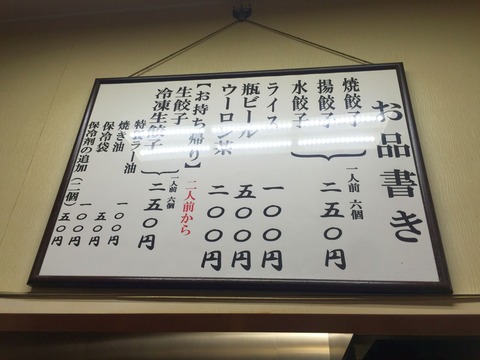 お品書き
焼餃子
揚餃子
水餃子
一人前 六個
二五〇円
ライス 一〇〇円
瓶ビール 五〇〇円
ウーロン茶 二〇〇円
【お持ち帰り】二人前から
生餃子
冷凍生餃子
一人前 六個
二五〇円
特製ラー油
焼き油 一〇〇円
保冷袋 一五〇円
保冷剤の追加(二個) 一五〇円